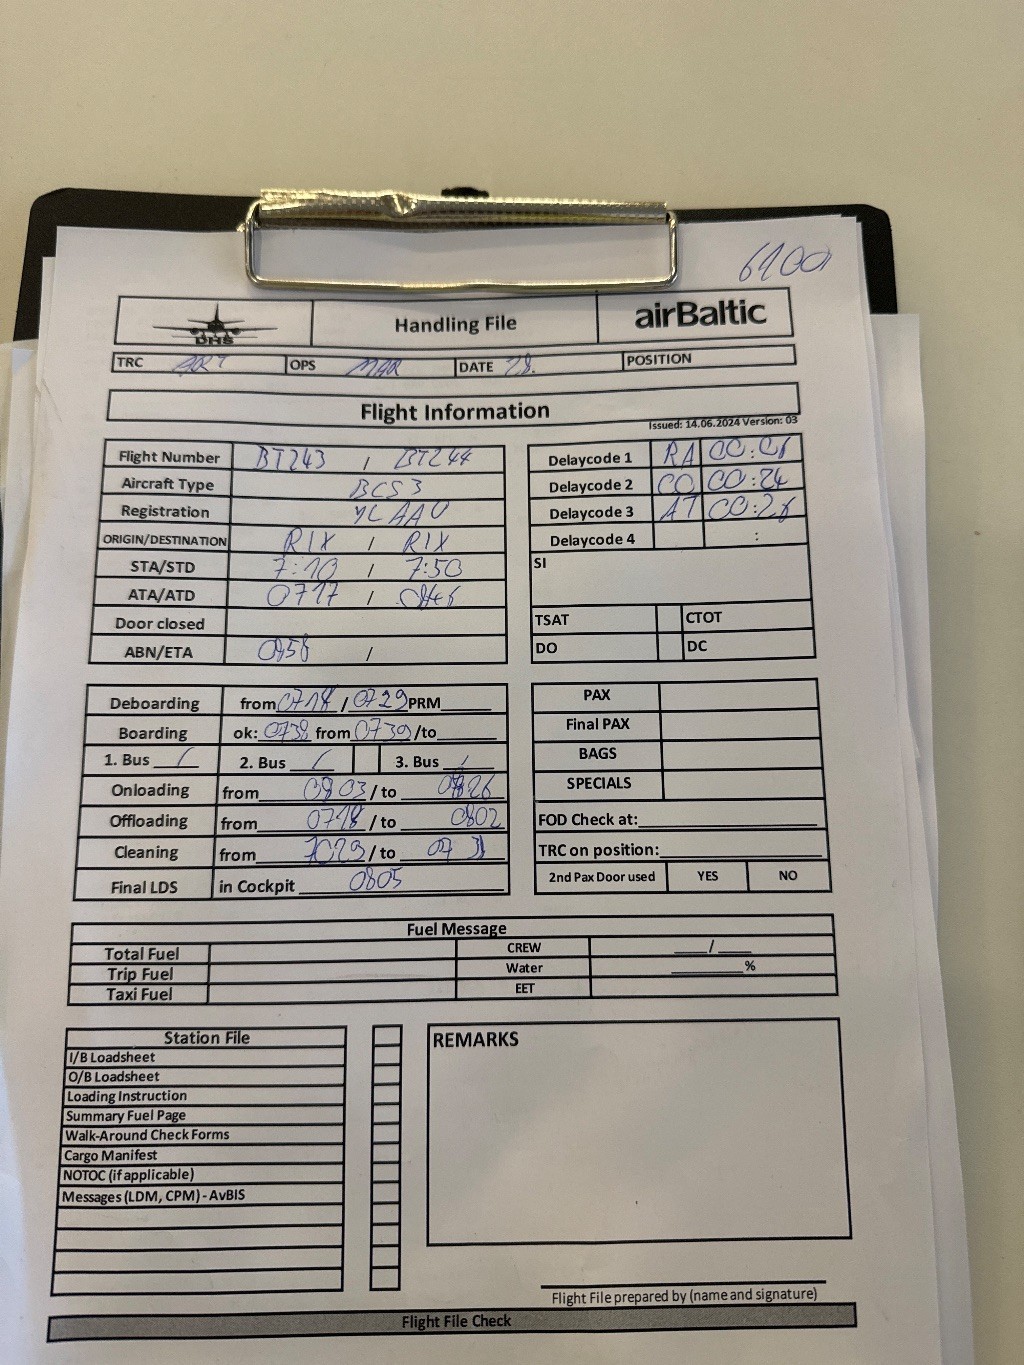 DHS
Handling File
airBaltic
TRC OPS DATE 28. POSITION
Flight Information
Issued: 14.06.2024 Version: 03
Flight Number BT243 / BT244
Aircraft Type BCS3
Registration YL AAU
ORIGIN/DESTINATION RIX / RIX
STA/STD 7:10 / 7:50
ATA/ATD 0717 /
Door closed
ABN/ETA /
Delaycode 1 RA
Delaycode 2 CO 00:24
Delaycode 3 AT
Delaycode 4 :
SI
TSAT CTOT
DO DC
Deboarding from 0718 / 0729 PRM
Boarding ok: 0738 from 0739 /to
1. Bus / 2. Bus / 3. Bus /
Onloading from 0803 / to 0826
Offloading from 0718 / to 0802
Cleaning from / to 0731
Final LDS in Cockpit 0805
PAX
Final PAX
BAGS
SPECIALS
FOD Check at:
TRC on position:
2nd Pax Door used YES NO
Fuel Message
Total Fuel CREW /
Trip Fuel Water %
Taxi Fuel EET
Station File
I/B Loadsheet
O/B Loadsheet
Loading Instruction
Summary Fuel Page
Walk-Around Check Forms
Cargo Manifest
NOTOC (if applicable)
Messages (LDM, CPM) - AvBIS
REMARKS
Flight File prepared by (name and signature)
Flight File Check